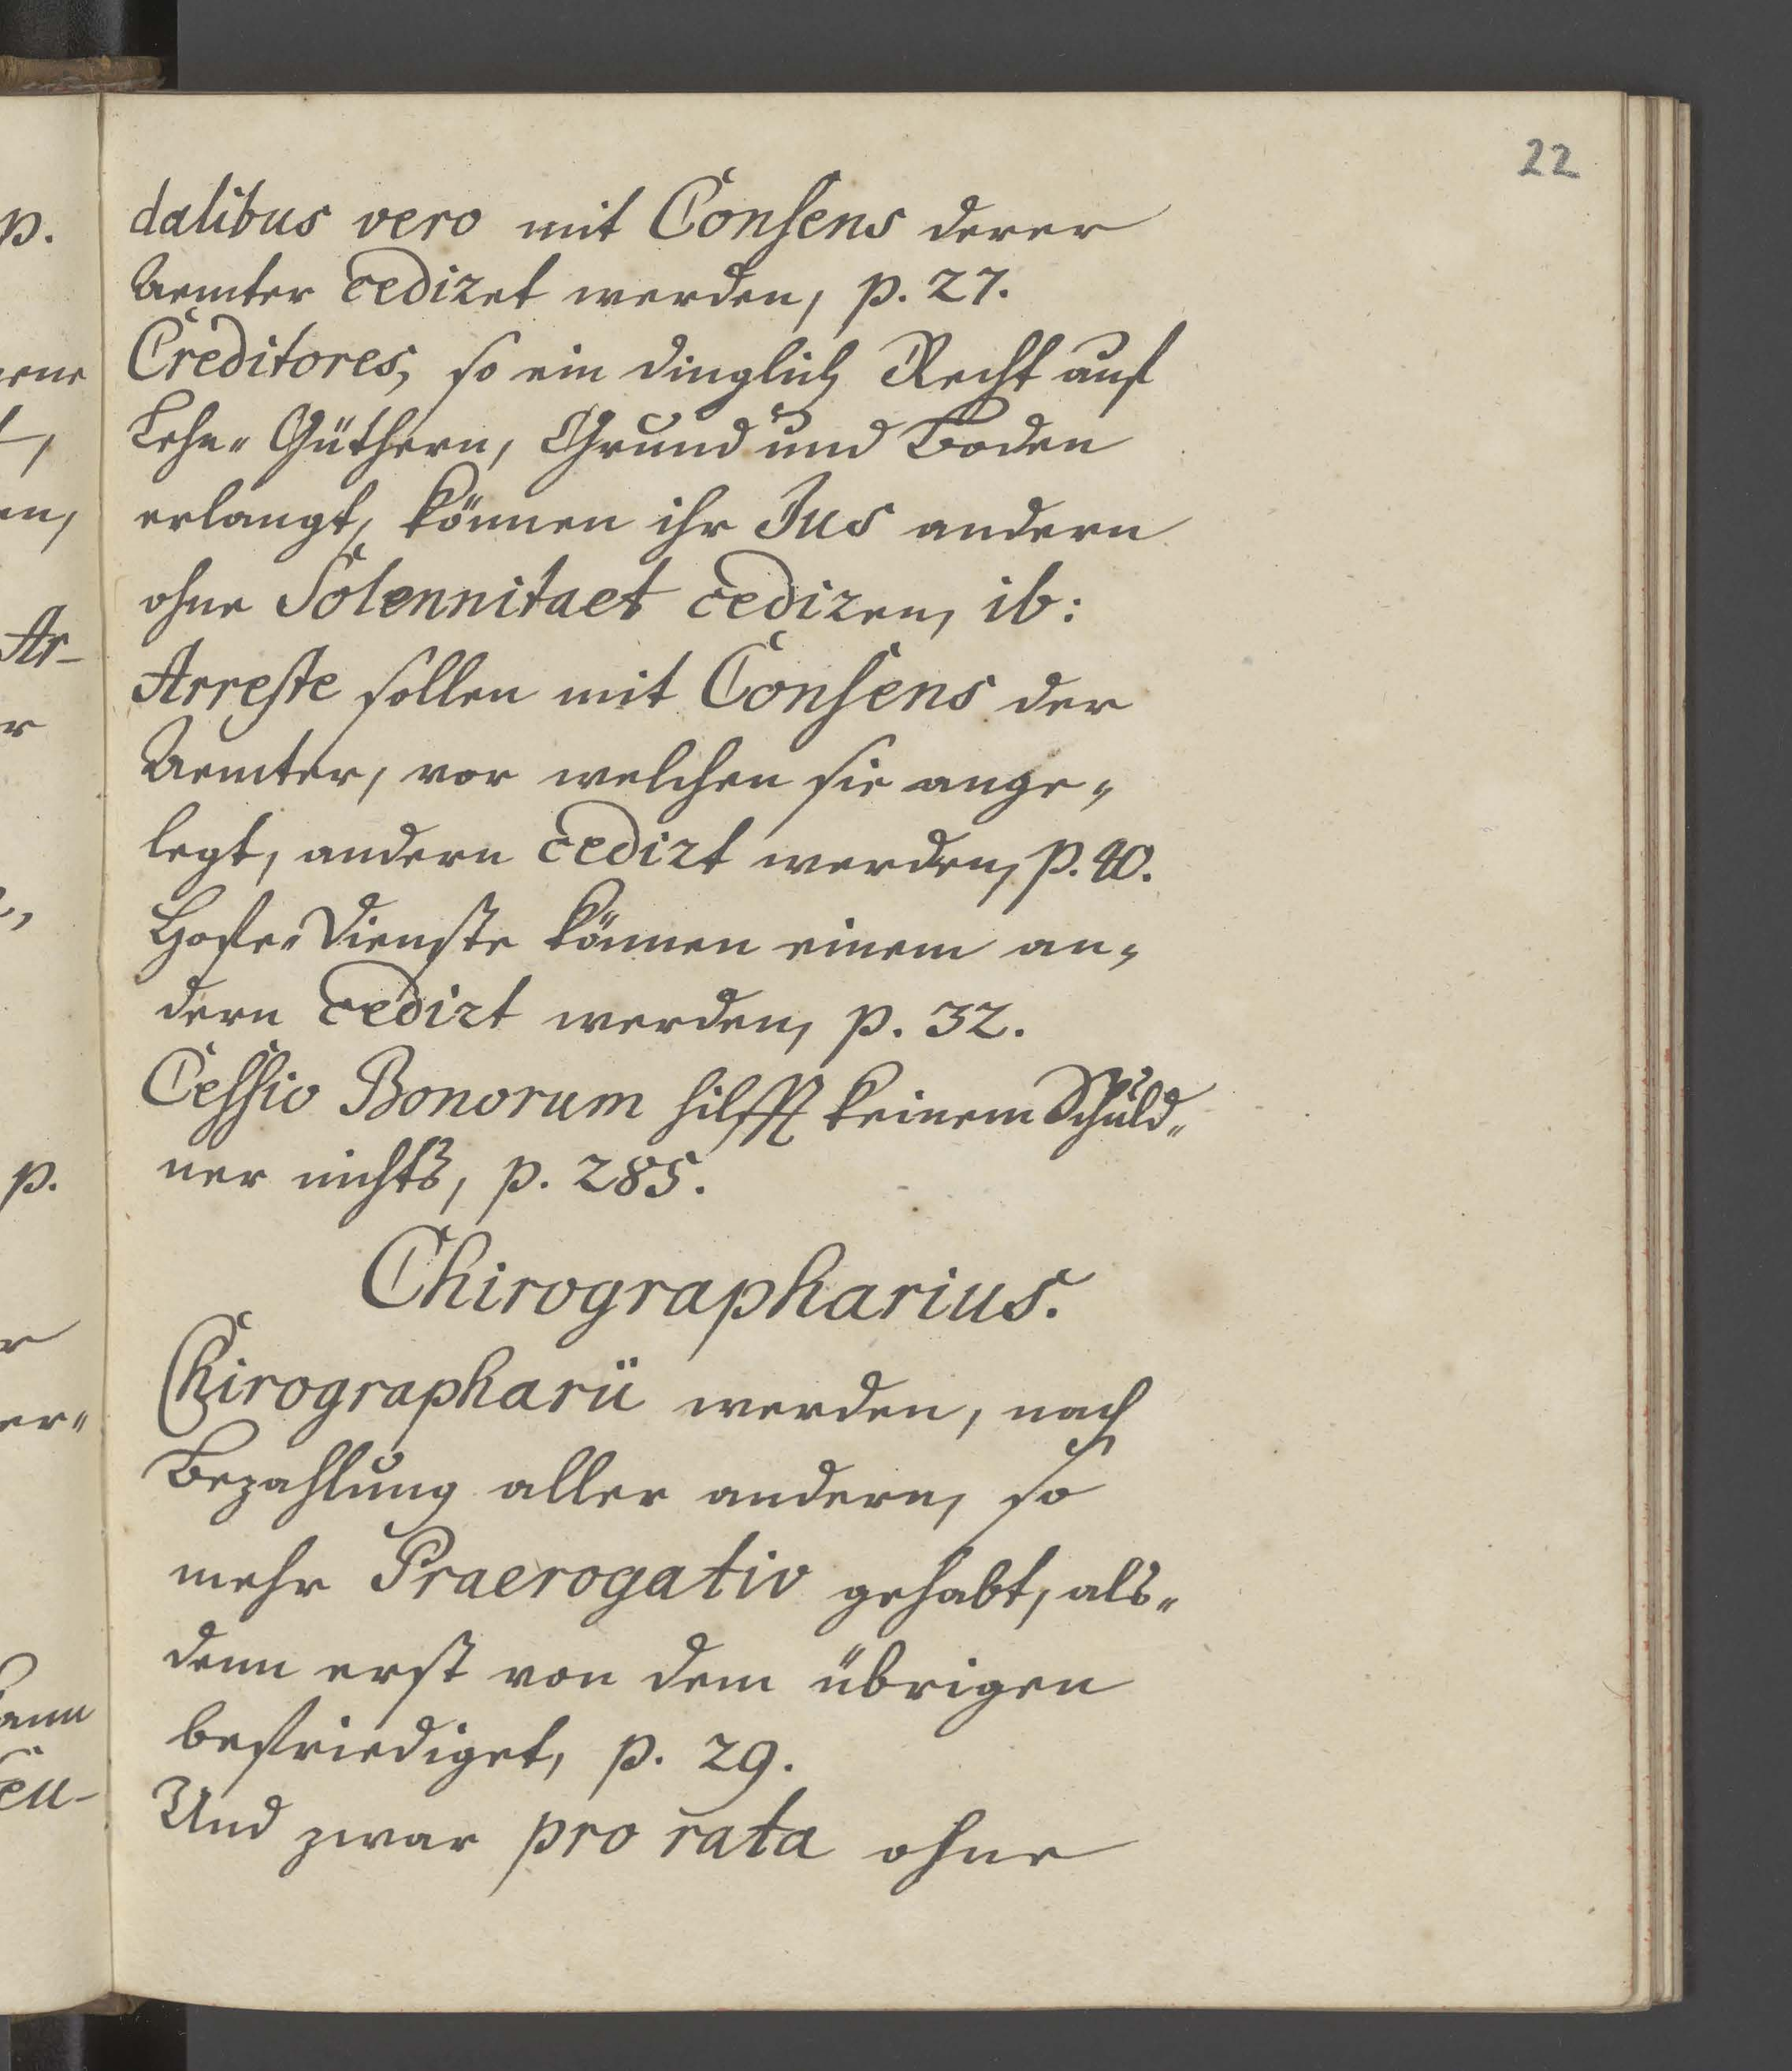 22
dalibus vero mit Consens derer
Aemter cediret werden, p. 27.
Creditores, so ein dinglich Recht auf
Lehn- Güthern, Grund und Boden
erlangt, können ihr Jus andern
ohne Solennitaet cediren, ib:
Arreste sollen mit Consens der
Aemter, vor welchen sie ange-
legt, andern cedirt werden, p. 40.
Hofe-Dienste können einem an-
dern cedirt werden, p. 32.
Cessio Bonorum hilfft keinem Schuld-
ner nichts, p. 285.
Chirographarius.
Chirographarii werden, nach
Bezahlung aller andern, so
mehr Praerogativ gehabt, als-
denn erst von dem übrigen
befriediget, p. 29.
Und zwar pro rata ohne